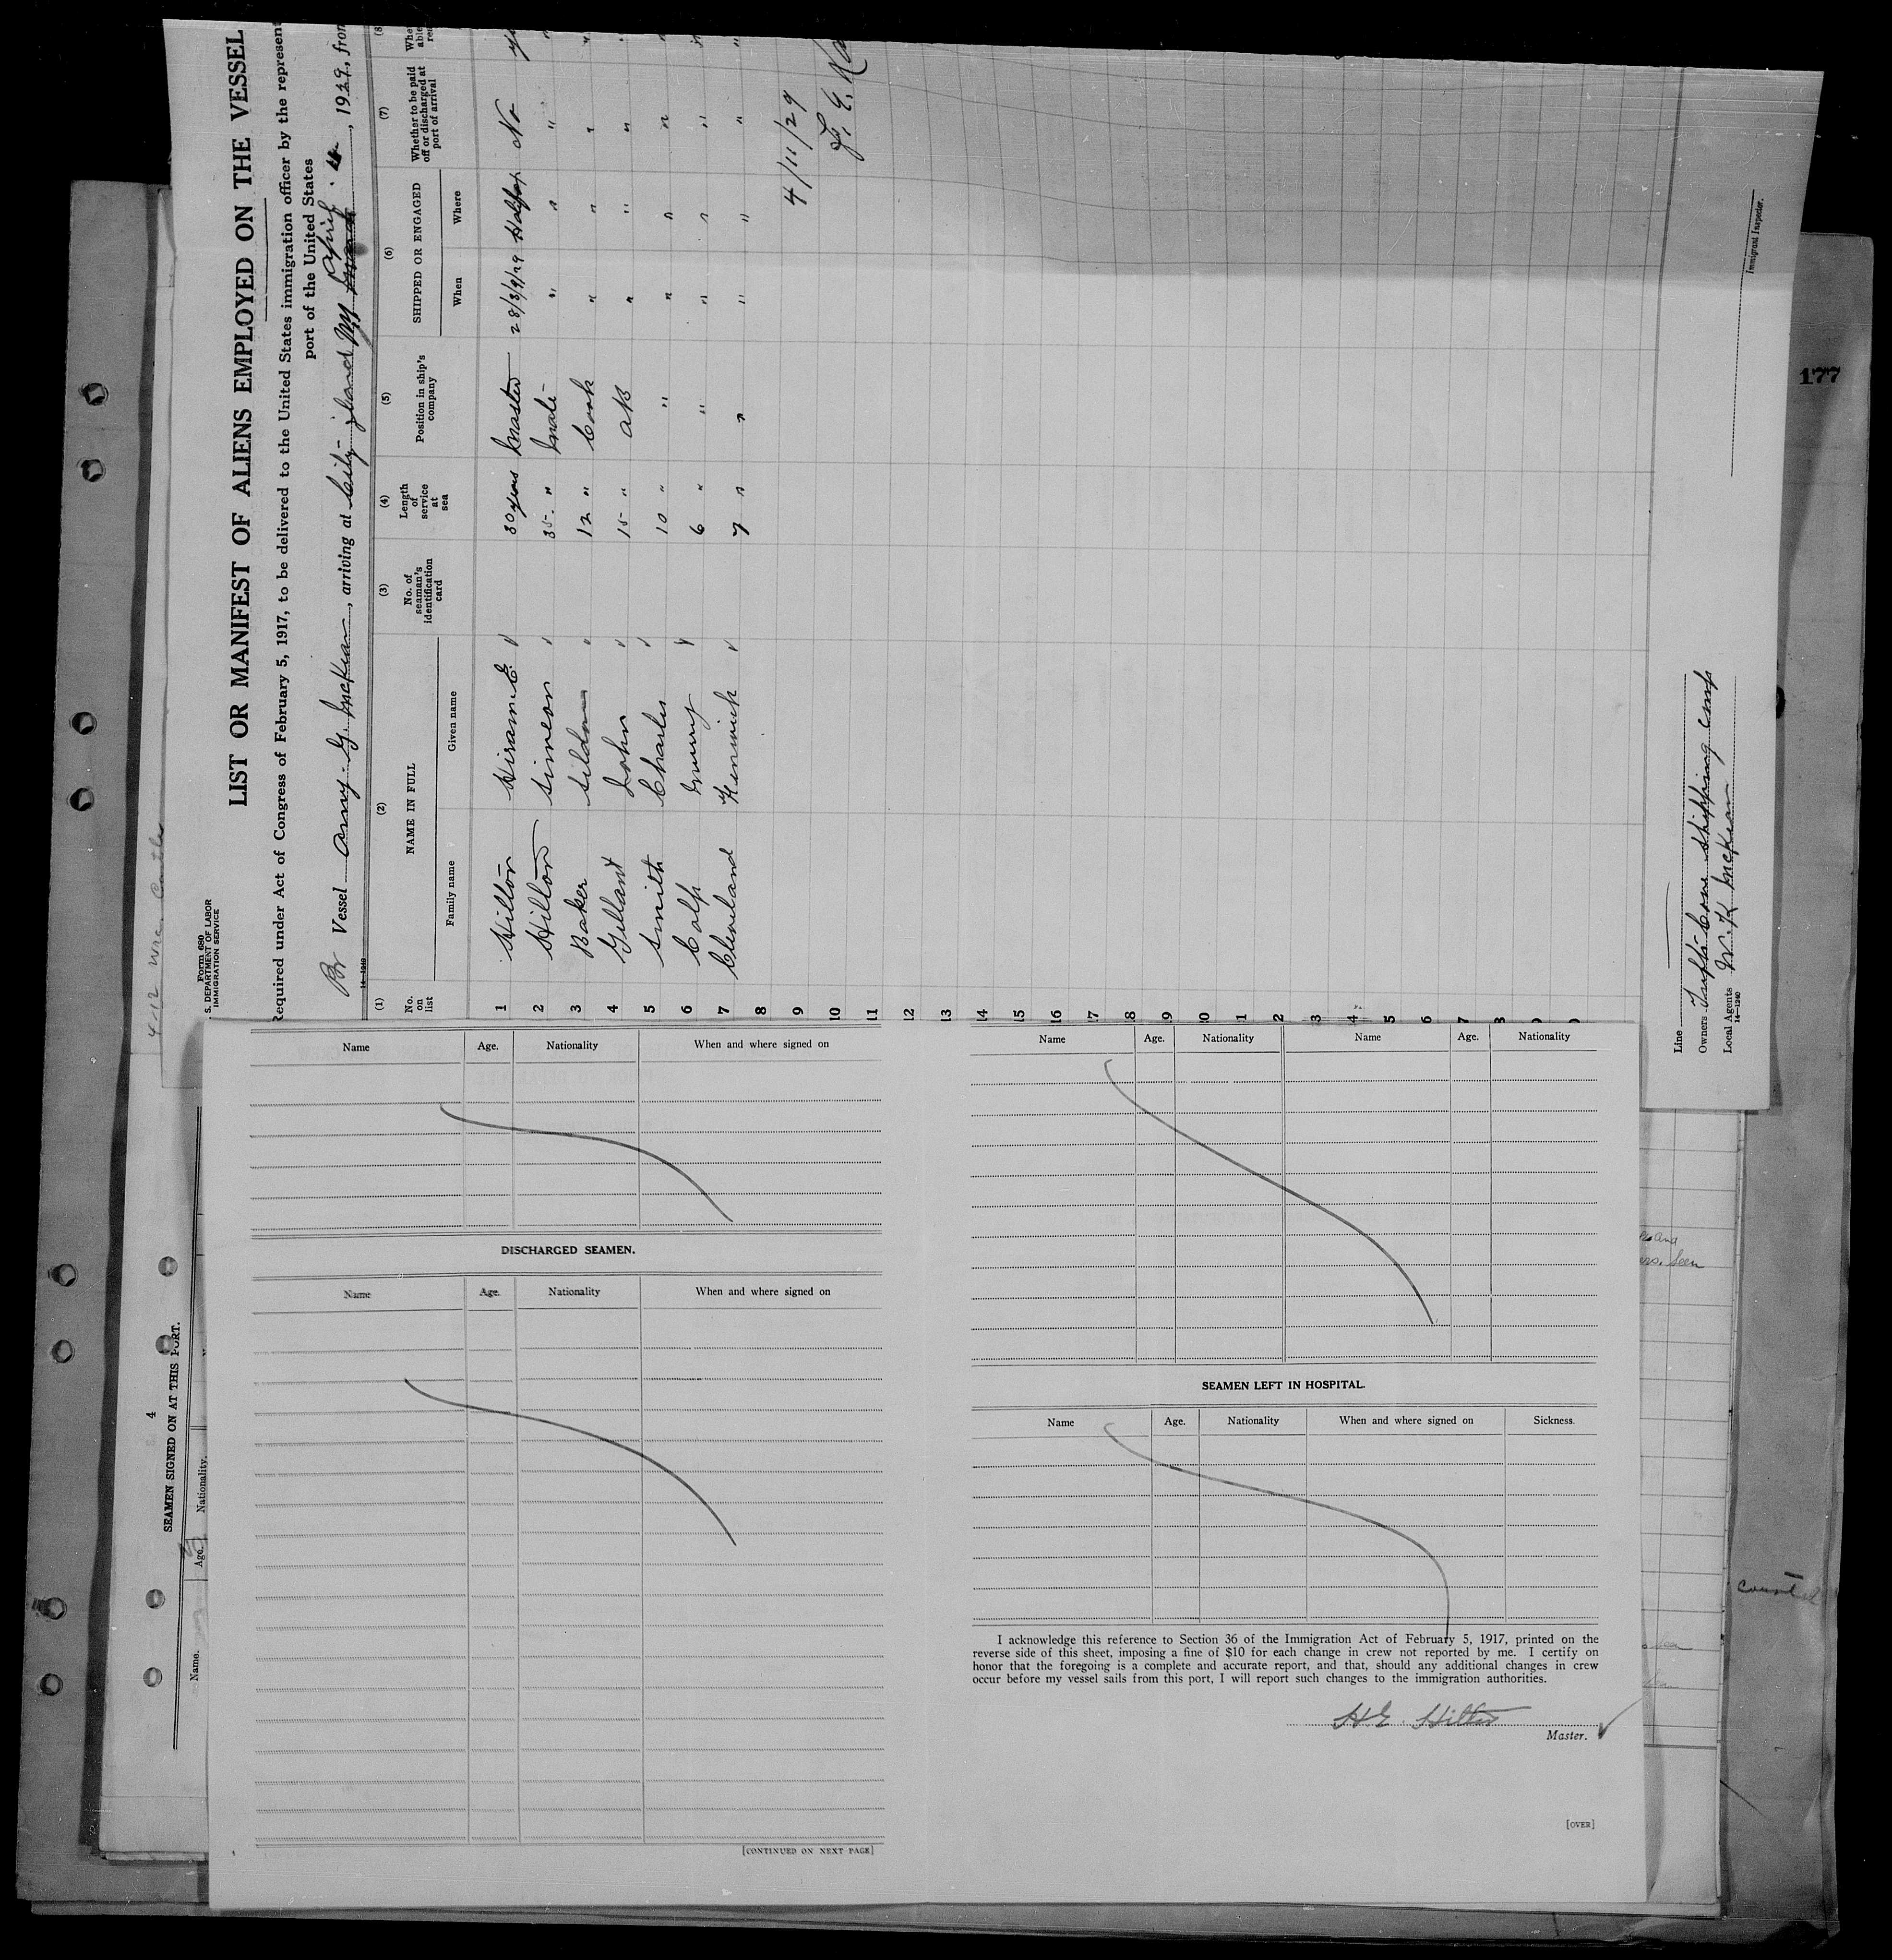 177
4-12 Wre.
Form 680
S. DEPARTMENT OF LABOR
IMMIGRATION SERVICE
LIST OR MANIFEST OF ALIENS EMPLOYED ON THE VESSEL
Required under Act of Congress of February 5, 1917, to be delivered to the United States immigration officer by the represent
port of the United States
Br Vessel Amy G. McKean, arriving at City Island NY April 4, 1929, from
14-1240
(1) (2) (3) (4) (5) (6) (7) (8
No. on list NAME IN FULL No. of seaman's identification card Length of service at sea Position in ship's company SHIPPED OR ENGAGED Whether to be paid off or discharged at port of arrival
Family name Given name When Where
1 Hilton Hiram E. 30 years Master 28/3/29 Halifax No
2 Hilton Simeon 35 " Mate " " "
3 Baker 12 " Cook " " "
4 John 15 " AB " " "
5 Smith Charles 10 " " " " "
6 6 " " " " "
7 Cleveland 7 " " " " "
8
9
10
11
12
13
14
15
16
17
18
19
4/11/29
Line
Owners Shipping Comp
Local Agents W. K. McKean
14-1240
Immigrant Inspector.
4
SEAMEN SIGNED ON AT THIS PORT.
Name. Age. Nationality.
and
seen
Name Age. Nationality When and where signed on
DISCHARGED SEAMEN.
Name Age. Nationality When and where signed on
[CONTINUED ON NEXT PAGE]
Name Age. Nationality Name Age. Nationality
SEAMEN LEFT IN HOSPITAL.
Name Age. Nationality When and where signed on Sickness.
I acknowledge this reference to Section 36 of the Immigration Act of February 5, 1917, printed on the
reverse side of this sheet, imposing a fine of $10 for each change in crew not reported by me. I certify on
honor that the foregoing is a complete and accurate report, and that, should any additional changes in crew
occur before my vessel sails from this port, I will report such changes to the immigration authorities.
H E. Hilton
Master.
[OVER]